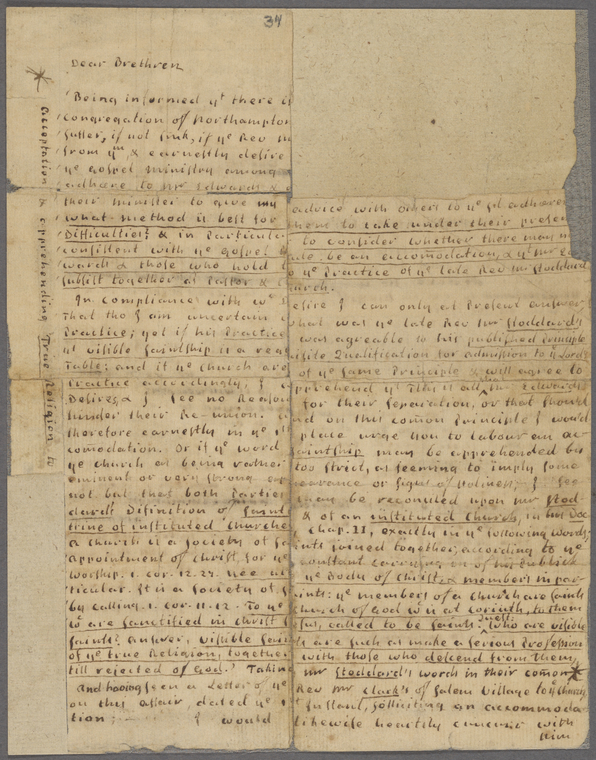 34
Dear Brethren
Being informed yt there
congregation of Northampton
suffer, if not sink, if ye Rev
from ym, & earnestly desire
ye gospel ministry among
adhere to mr Edwards &
their minister to give my advice with others to ye sd adherents
what method is best for them to take under their present
Difficulties? & in Particular to consider whether there may
consistent with ye gospel be an accomodation, & yt mr
wards & those who hold to ye Practice of ye late Rev mr Stoddard
subsist together as Pastor & church.
In compliance with wc desire I can only at Present answer
That tho I am uncertain what was ye late Rev mr Stoddard's
Practice; yet if his Practice was agreable to his published Principle
yt visible saintship is a Qualification for admission to ye Lords
Table: and if ye church are of ye same Principle & will agree to
Practice accordingly, I apprehend yt This is all mr Edwards
Desires, & I see no Reason for their separation, or that should
hinder their Re-union. and on this comon Principle I would
therefore earnestly in ye place urge you to labour an ac
comodation. Or if ye word saintship may be apprehended by
ye church as being rather too strict, as seeming to imply some
eminent or very strong appearance or signs of Holiness; I see
not but that both Parties may be reconciled upon mr Stod
dards Definition of saint & of an instituted Church, in his Doc
trine of instituted Churches, chap. II, exactly in ye following words;
a church is a society of saints joined together, according to ye
appointment of Christ, for ye constant carrying on of his Publick
worship. 1. cor. 12. 27. ye Body of Christ & members in par
ticular. It is a society of saints: ye members of a Church are saints
by calling. 1. cor. 1. 2. To ye church of God wc is at corinth, to them
yt are sanctified in christ Jesus, called to be saints. Quest: Who are visible
saints? answer, visible saints are such as make a serious Profession
of ye true Religion, together with those who descend from them,
till rejected of God. Taking mr Stoddard's words in their comon *
And having seen a Letter of ye Rev mr clark's of salem village to ye church
on this affair, dated ye solliciting an accommoda
tion; I would likewise heartily concurr with
him
* acceptation & apprehending True Religion to